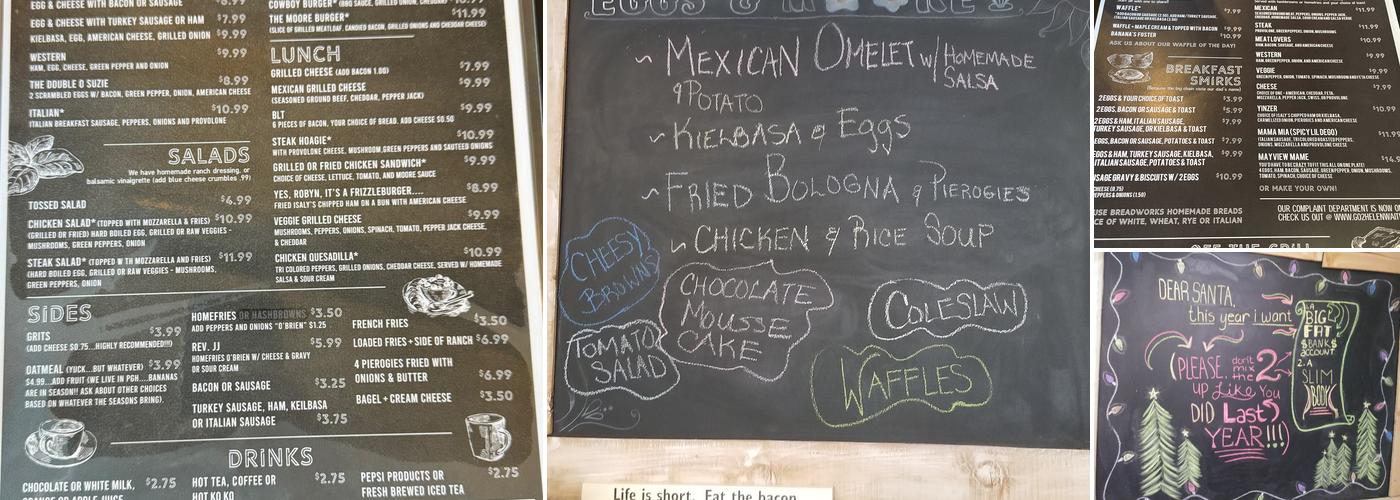 EGG & CHEESE WITH BACON OR SAUSAGE
EGG & CHEESE WITH TURKEY SAUSAGE OR HAM $7.99
KIELBASA, EGG, AMERICAN CHEESE, GRILLED ONION $9.99
WESTERN $9.99
HAM, EGG, CHEESE, GREEN PEPPER AND ONION
THE DOUBLE O SUZIE $8.99
2 SCRAMBLED EGGS W/ BACON, GREEN PEPPER, ONION, AMERICAN CHEESE
ITALIAN* $10.99
ITALIAN BREAKFAST SAUSAGE, PEPPERS, ONIONS AND PROVOLONE
SALADS
We have homemade ranch dressing, or
balsamic vinaigrette (add blue cheese crumbles .99)
TOSSED SALAD $6.99
CHICKEN SALAD* (TOPPED WITH MOZZARELLA & FRIES) $10.99
(GRILLED OR FRIED) HARD BOILED EGG, GRILLED OR RAW VEGGIES -
MUSHROOMS, GREEN PEPPERS, ONION
STEAK SALAD* (TOPPED W TH MOZZARELLA AND FRIES) $11.99
(HARD BOILED EGG, GRILLED OR RAW VEGGIES - MUSHROOMS,
GREEN PEPPERS, ONION
COWBOY BURGER* (BBQ SAUCE, GRILLED ONIONS AND CHEDDAR)
THE MOORE BURGER* $11.99
(SLICE OF GRILLED MEATLOAF, CANDIED BACON, GRILLED ONIONS AND CHEDDAR CHEESE)
LUNCH
GRILLED CHEESE (ADD BACON 1.00) $7.99
MEXICAN GRILLED CHEESE $9.99
(SEASONED GROUND BEEF, CHEDDAR, PEPPER JACK)
BLT $9.99
6 PIECES OF BACON, YOUR CHOICE OF BREAD. ADD CHEESE $0.50
STEAK HOAGIE* $10.99
WITH PROVOLONE CHEESE, MUSHROOM,GREEN PEPPERS AND SAUTEED ONIONS
GRILLED OR FRIED CHICKEN SANDWICH* $9.99
CHOICE OF CHEESE, LETTUCE, TOMATO, AND MOORE SAUCE
YES, ROBYN, IT'S A FRIZZLEBURGER.... $8.99
FRIED ISALY'S CHIPPED HAM ON A BUN WITH AMERICAN CHEESE
VEGGIE GRILLED CHEESE $9.99
MUSHROOMS, PEPPERS, ONIONS, SPINACH, TOMATO, PEPPER JACK CHEESE,
& CHEDDAR
CHICKEN QUESADILLA* $10.99
TRI COLORED PEPPERS, GRILLED ONIONS, CHEDDAR CHEESE, SERVED W/ HOMEMADE
SALSA & SOUR CREAM
SIDES
GRITS $3.99
(ADD CHEESE $0.75...HIGHLY RECOMMENDED!!!)
OATMEAL (YUCK...BUT WHATEVER) $3.99
$4.99...ADD FRUIT (WE LIVE IN PGH....BANANAS
ARE IN SEASON!! ASK ABOUT OTHER CHOICES
BASED ON WHATEVER THE SEASONS BRING).
HOMEFRIES OR HASHBROWNS $3.50
ADD PEPPERS AND ONIONS "O'BRIEN" $1.25
REV. JJ $5.99
HOMEFRIES O'BRIEN W/ CHEESE & GRAVY
OR SOUR CREAM
BACON OR SAUSAGE $3.25
TURKEY SAUSAGE, HAM, KEILBASA
OR ITALIAN SAUSAGE $3.75
FRENCH FRIES $3.50
LOADED FRIES + SIDE OF RANCH $6.99
4 PIEROGIES FRIED WITH
ONIONS & BUTTER $6.99
BAGEL + CREAM CHEESE $3.50
DRINKS
CHOCOLATE OR WHITE MILK, $2.75
ORANGE OR APPLE JUICE
HOT TEA, COFFEE OR $2.75
HOT KO KO
PEPSI PRODUCTS OR $2.75
FRESH BREWED ICED TEA
EGGS &
~ MEXICAN OMELET w/ HOMEMADE
SALSA
& POTATO
~ KIELBASA & EGGS
~ FRIED BOLOGNA & PIEROGIES
~ CHICKEN & RICE SOUP
CHEESY
BROWNS
CHOCOLATE
MOUSSE
CAKE
COLESLAW
TOMATO
SALAD
WAFFLES
Life is short. Eat the bacon
WAFFLE*
WAFFLE + MAPLE CREAM & TOPPED WITH BACON $9.99
BANANA'S FOSTER $10.99
ASK US ABOUT OUR WAFFLE OF THE DAY!
BREAKFAST
SMIRKS
(Because the big chain stole our dad's name)
2 EGGS & YOUR CHOICE OF TOAST $3.99
2 EGGS, BACON OR SAUSAGE & TOAST $5.99
2 EGGS & HAM, ITALIAN SAUSAGE, $7.99
TURKEY SAUSAGE, OR KIELBASA & TOAST
EGGS, BACON OR SAUSAGE, POTATOES & TOAST $7.99
EGGS & HAM, TURKEY SAUSAGE, KIELBASA, $9.99
ITALIAN SAUSAGE, POTATOES & TOAST
SAUSAGE GRAVY & BISCUITS W/ 2 EGGS $10.99
USE BREADWORKS HOMEMADE BREADS
CE OF WHITE, WHEAT, RYE OR ITALIAN
MEXICAN $11.99
STEAK $11.99
PROVOLONE, GREEN PEPPERS, ONION, MUSHROOMS
MEATLOVERS $10.99
HAM, BACON, SAUSAGE, AND AMERICAN CHEESE
WESTERN $9.99
HAM, GREEN PEPPER, ONION, AND AMERICAN CHEESE
VEGGIE $9.99
CHEESE $7.99
CHOICE OF ONE - AMERICAN, CHEDDAR, FETA,
MOZZARELLA, PEPPER JACK, SWISS, OR PROVOLONE
YINZER $10.99
MAMA MIA (SPICY LIL DEGO) $11.99
MAYVIEW MAME
OR MAKE YOUR OWN!
OUR COMPLAINT DEPARTMENT IS NOW
CHECK US OUT @ WWW.GO2HELENWA
OFF THE GRILL
DEAR SANTA,
this year i want
1. A
BIG
FAT
$BANK$
ACCOUNT
2. A
SLIM
BODY
(PLEASE don't
mix
the 2
up Like You
DID Last
YEAR!!!)